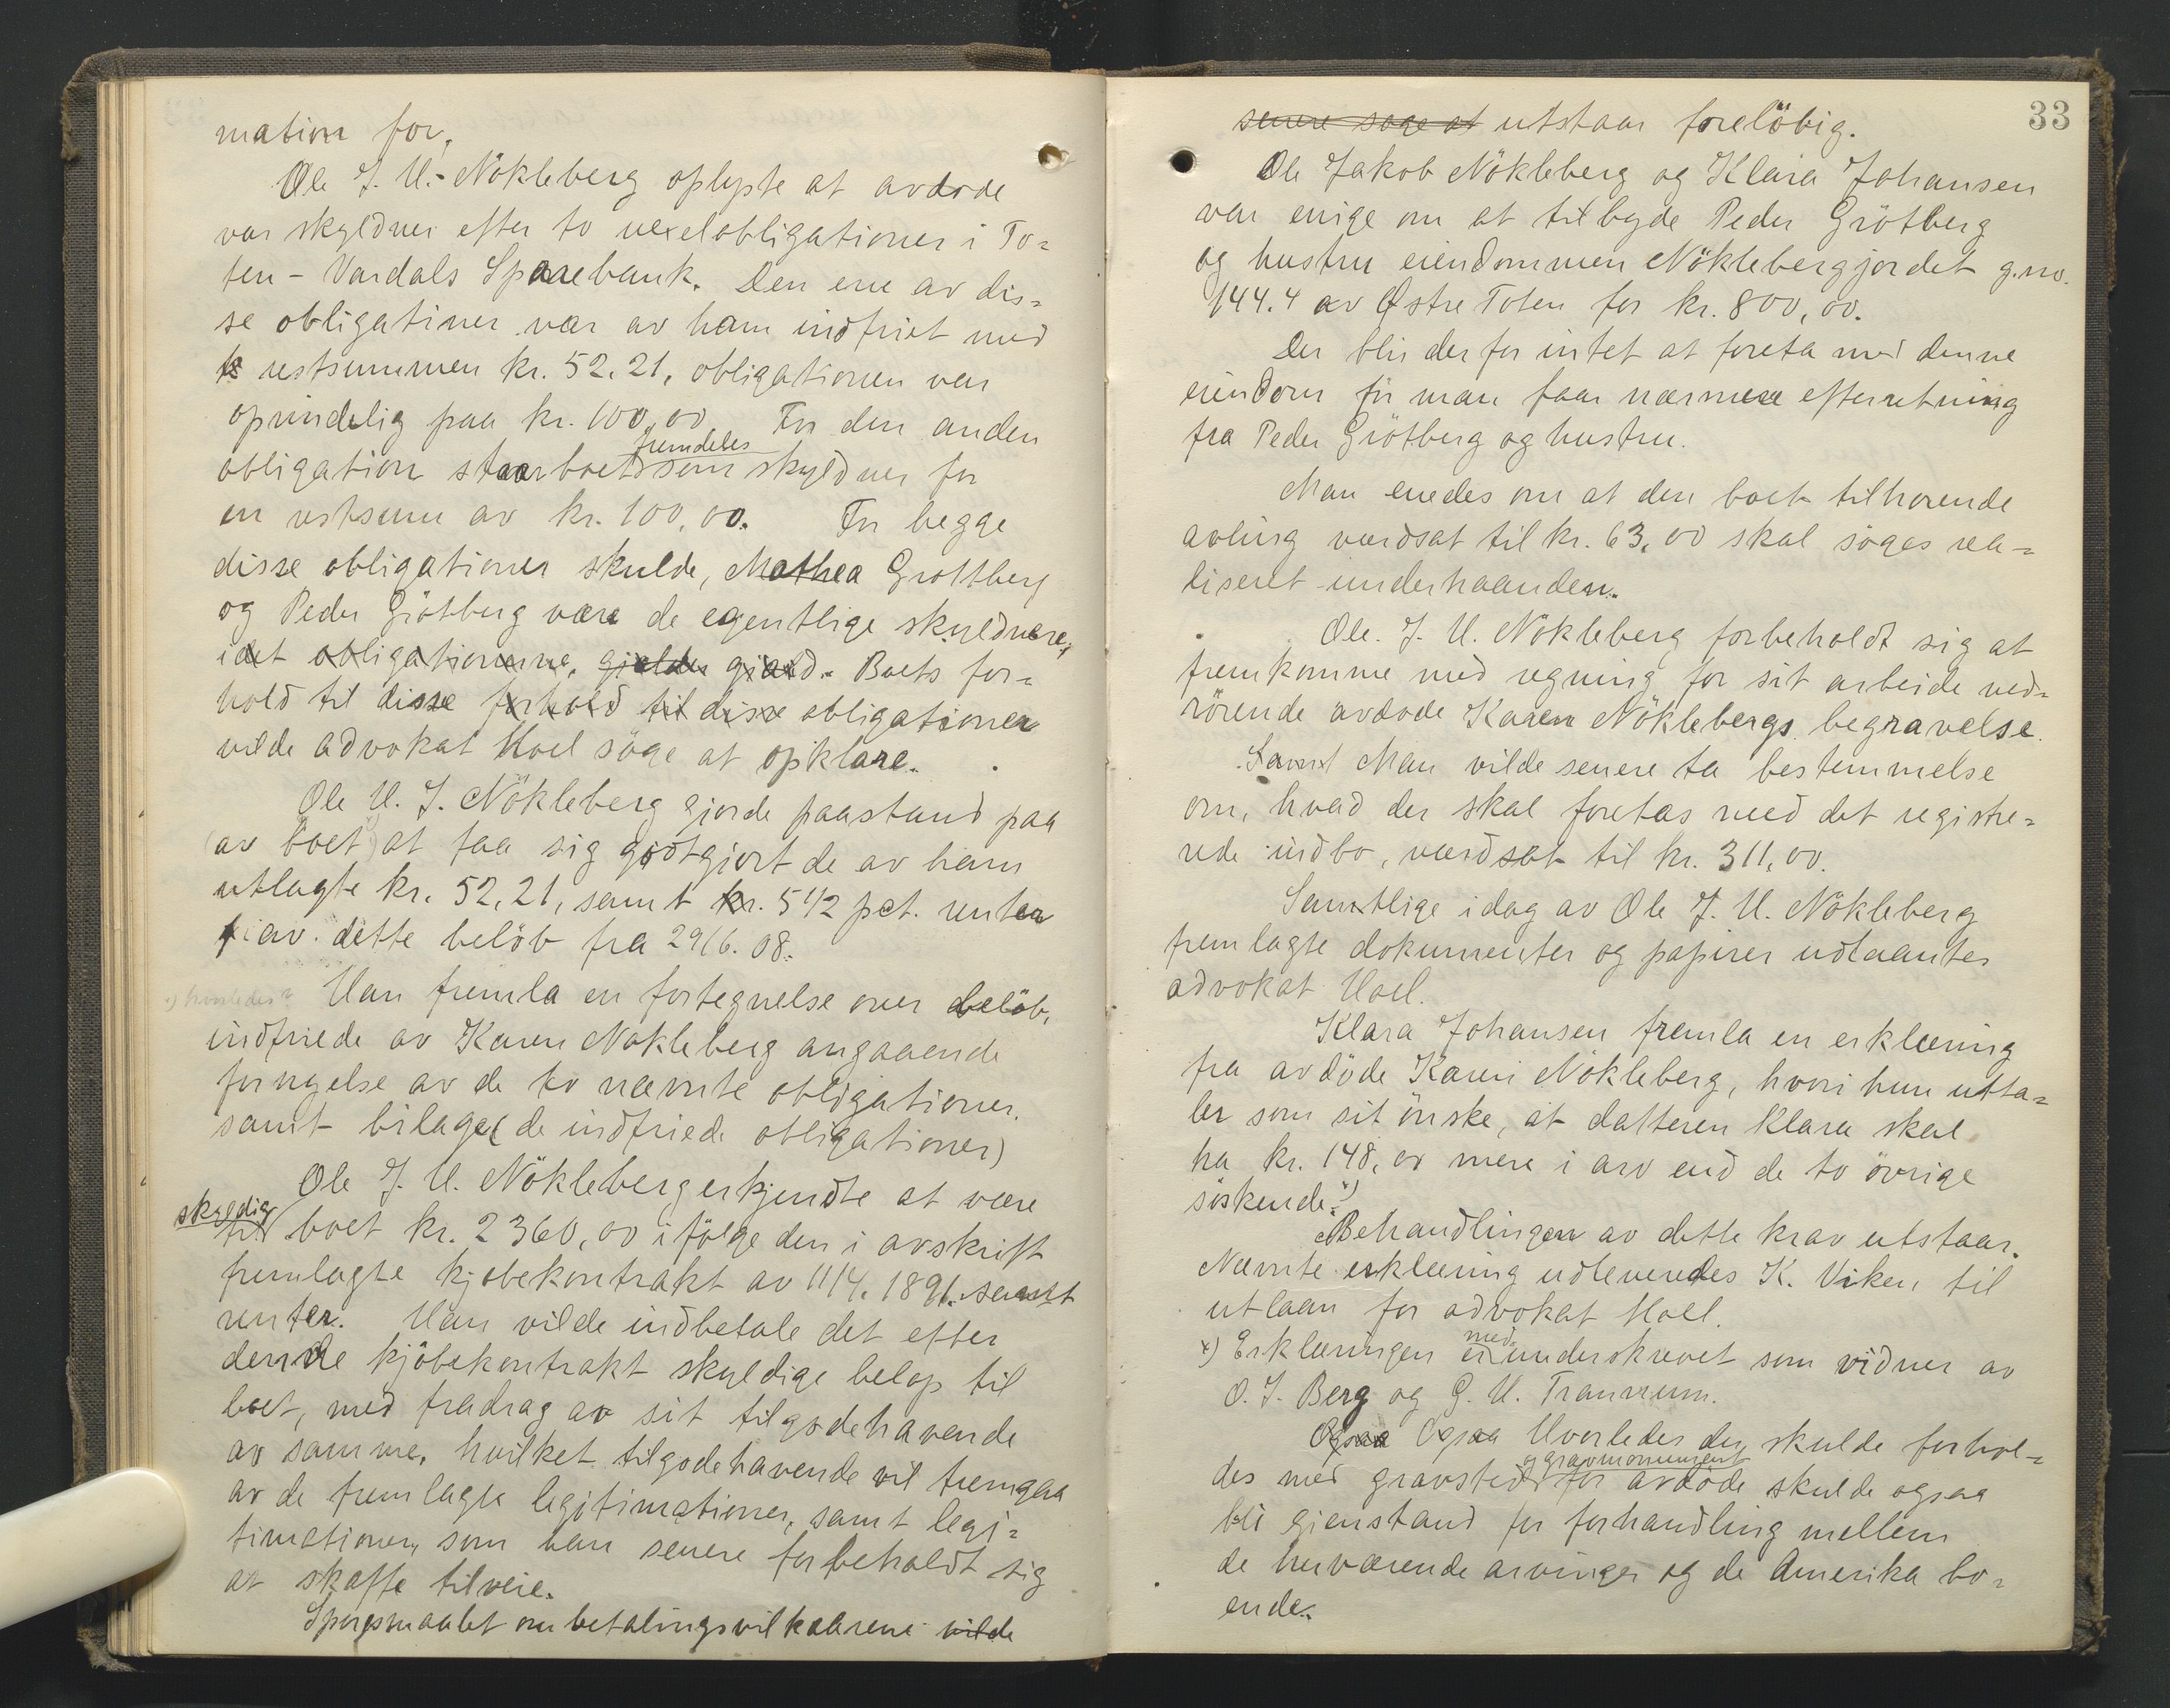 mation for.
Ole J. U.- Nökleberg oplyste at avdode
var skyldner efter to vexelobligationer i To=
ten - Vardals Sparebank. Den ene av dis=
se obligatiner var av ham indfriet med
restsummen kr. 52.21, obligationen var
oprindelig paa kr. 100,00 For den anden
fremdeles
obligation staar boet som skyldner for
en restsum av kr. 100,00. For begge
disse obligationer skulde, Mathea Grottberg
og Peder Grötberg være de egentlige skyldnere,
idet obligationerne, gjelder gjæld. Boets for=
hold til disse forhold til disse obligationer
vilde advokat Hoel söge at opklare.
Ole U. J. Nökleberg gjorde paastand paa
(av boet) at faa sig godtgjort de av ham
utlagte kr. 52,21, samt kr. 5 1/2 pct. renter
av dette belöb fra 29/6. 08.
x) hvorledes? Han fremla en fortegnelse over belöb,
indfriede av Karen Nökleberg angaaende
fornyelse av de to nævnte obligationer.
samt bilage (de indfriede obligationer)
Ole J. U. Nökleberg erkjendte at være
skyldig
til boet kr. 2360,00 ifölge den i avskrift
fremlagte kjöbekontrakt av 11/4. 1891. samt
renter. Han vilde indbetale det efter
denne kjöbekontrakt skyldige belop til
boet, med fradrag av sit tilgodehavende
av samme, hvilket tilgodehavende vil fremgaa
av de fremlagte legitimationer, samt legi=
timationer, som han senere forbeholdt sig
at skaffe tilveie.
Sporgsmaalet om betalingsvilkaarene vilde
33
senere soge at utstaar forelöbig.
Ole Jakob Nökleberg og Klara Johansen
var enige om at tilbyde Peder Grötberg
og hustru eiendommen Nöklebergjordet g.no.
144.4 av Østre Toten for kr. 800,00.
Der blir derfor intet at foreta med denne
eiendom för man faar nærmere efterretning
fra Peder Grötberg og hustru.
Man enedes om at den boet tilhorende
avling værdsat til kr. 63,00 skal söges rea=
liseret underhaanden.
Ole. J. U. Nökleberg forbeholdt sig at
fremkomme med regning for sit arbeide ved=
rörende avdöde Karen Nöklebergs begravelse.
Samt Man vilde senere ta bestemmelse
om, hvad der skal foretas med det registre=
rede indbo, værdsat til kr. 311,00.
Samtlige idag av Ole J. U. Nökleberg
fremlagte dokumenter og papirer udlaantes
advokat Hoel.
Klara Johansen fremla en erklæring
fra avdöde Karen Nökleberg, hvori hun utta=
ler som sit önske, at datteren Klara skal
ha kr. 148,00 mere i arv end de to övrige
söskende. x)
Behandlingen av dette krav utstaar.
Nævnte erklæring udleveredes K. Viken til
utlaan for advokat Hoel.
med
x) Erklæringen er underskrevet som vidner av
O. J. Berg og G. U. Tranrum.
Ogsaa Ogsaa Hvorledes der skulde forhol=
og gravmonument
des med gravsted for avdöde skulde ogsaa
bli gjenstand for forhandling mellem
de herværende arvinger og de Amerika bo=
ende.